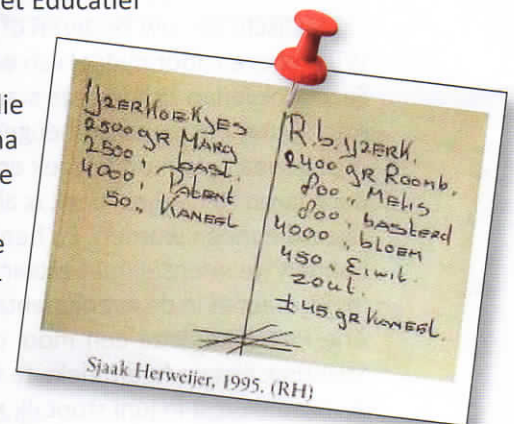 et Educatief
die
na
e
e
IJZERKOEKJES
2500 gR MARG
2500 ,, BAST.
4000 ,, PATENT
50 ,, KANEEL
R.b. IJZERK.
2400 gR Roomb.
800 ,, MELIS
800 ,, bASTERD
4000 ,, bLOEM
450 ,, Eiwit.
ZOUT.
± 45 gR KANEEL.
Sjaak Herweijer, 1995. (RH)